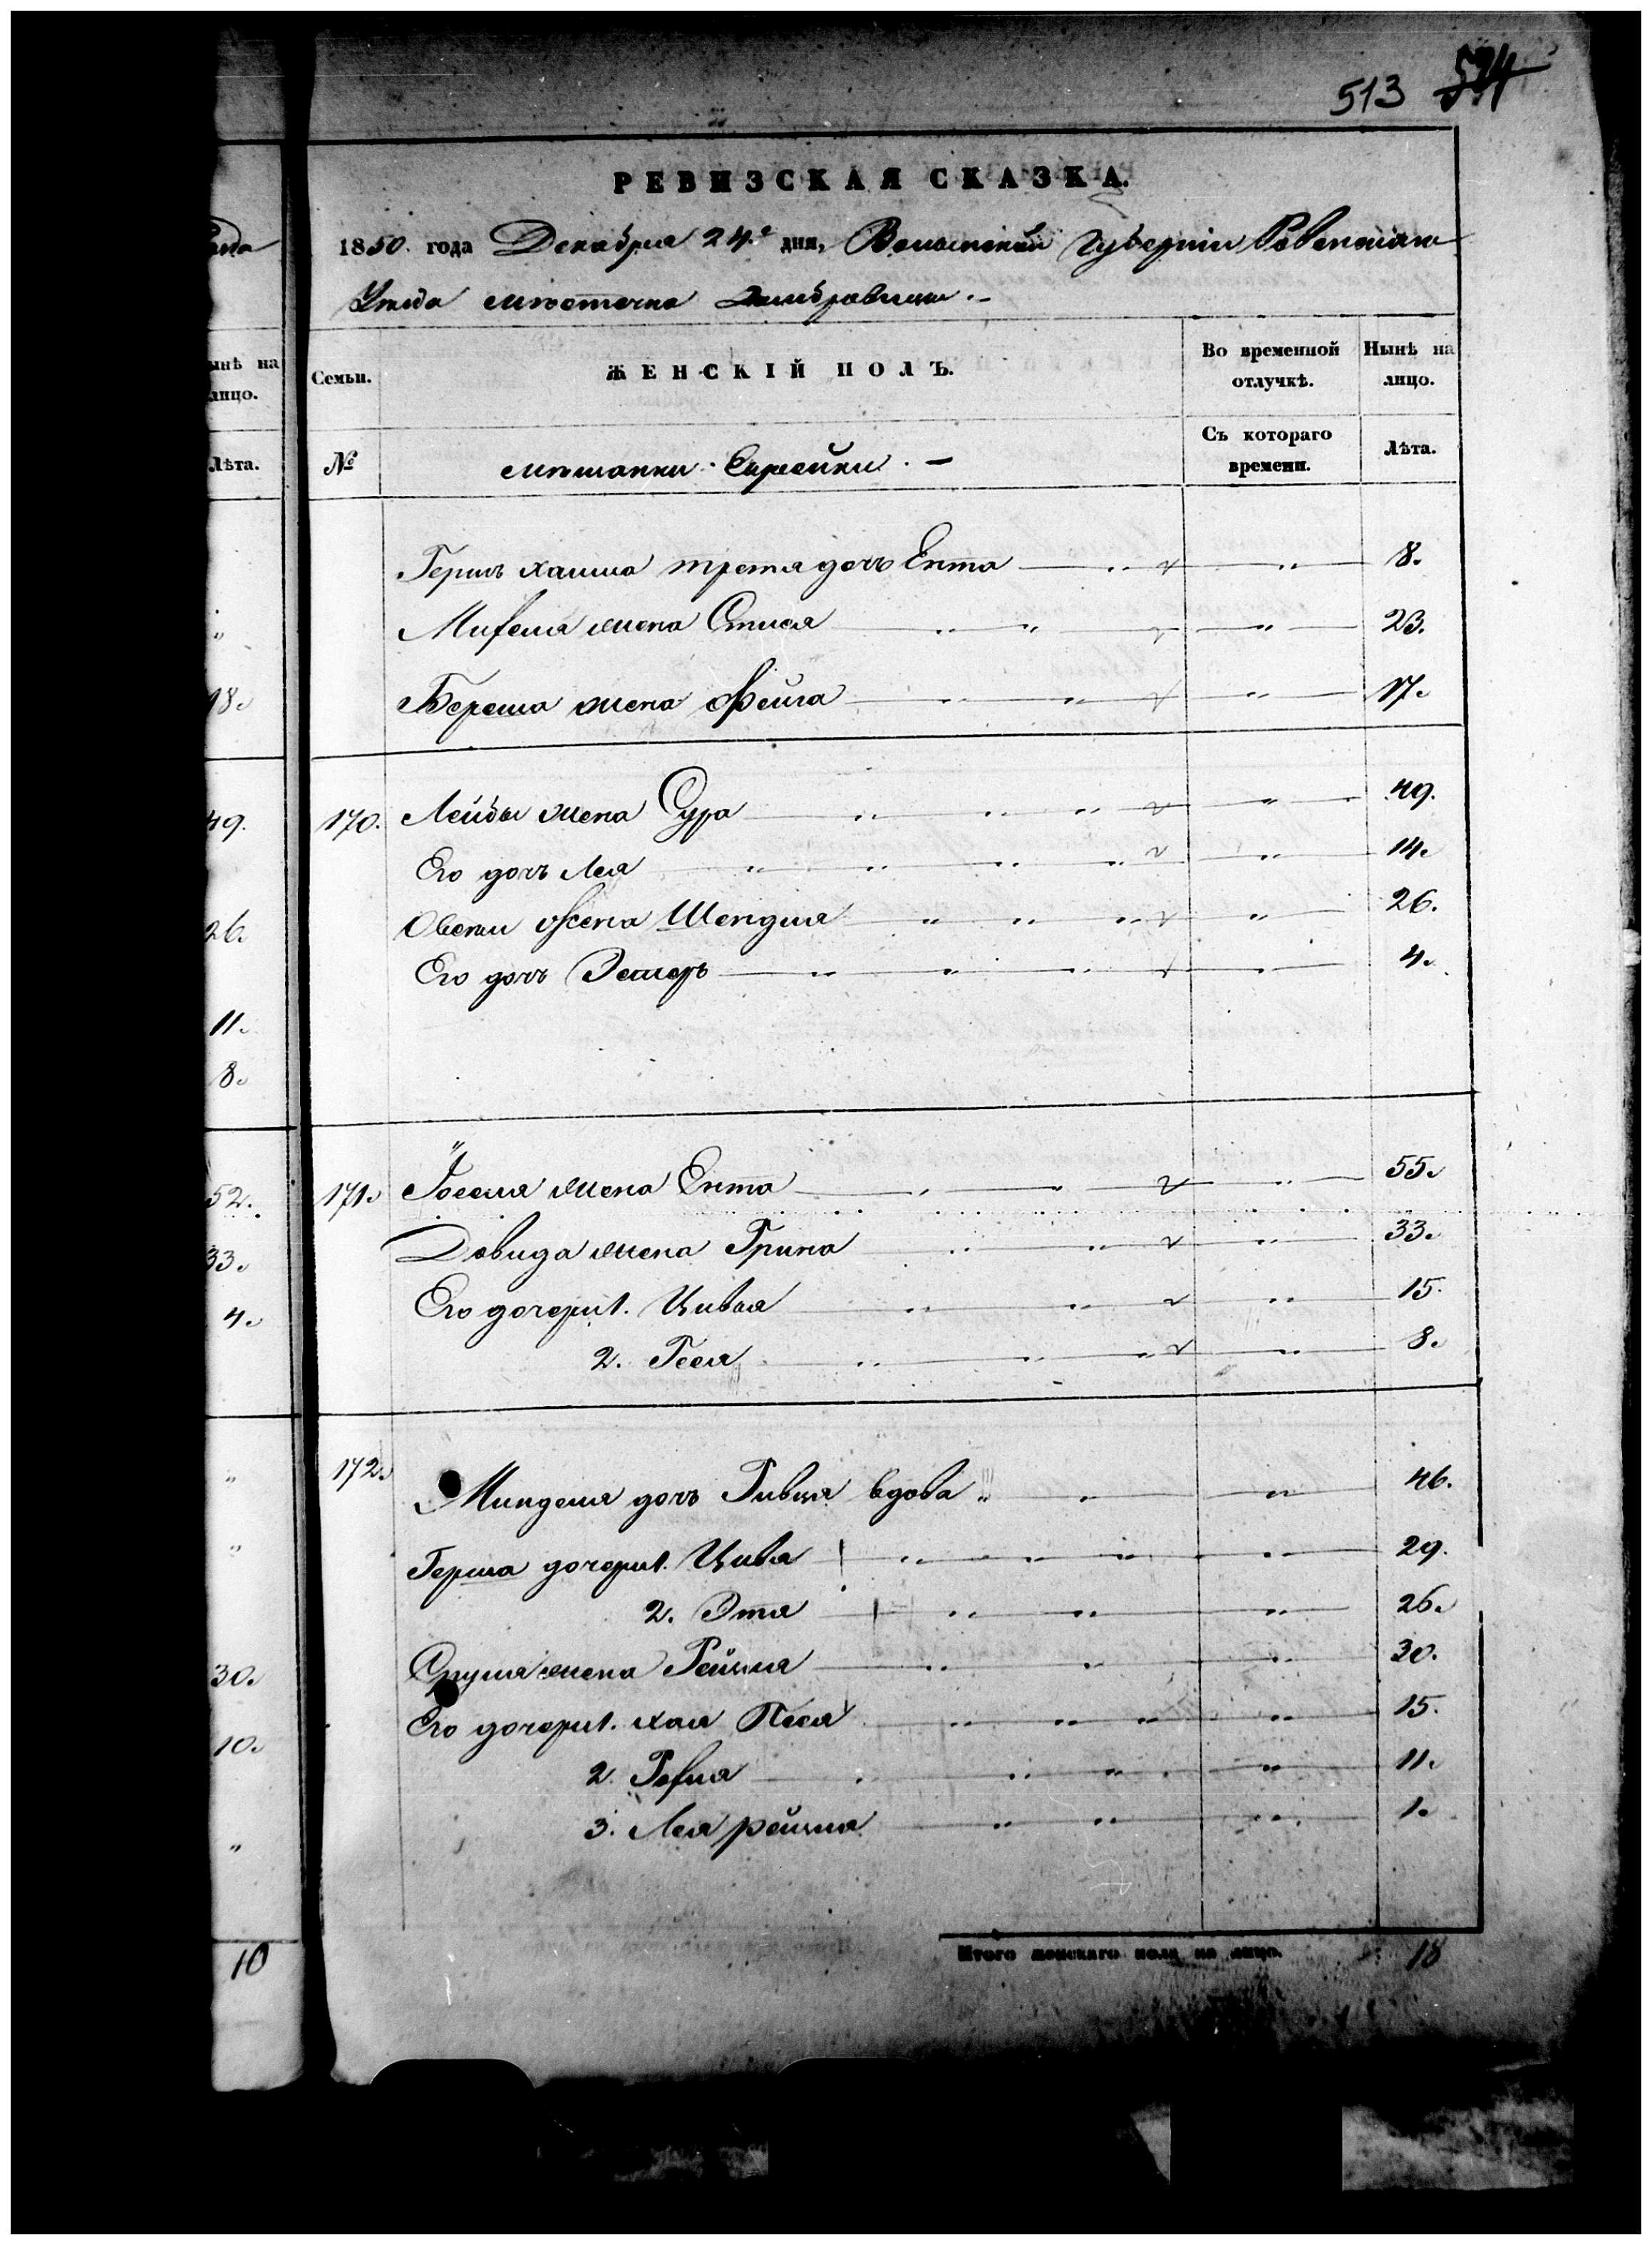 513 524
РЕВИЗСКАЯ СКАЗКА.
1850 года Декабря 24.го дня, Волынской Губерніи Ровенскаго
Уезда местечка Домбровицы.-
Семьи.
ЖЕНСКІЙ ПОЛЪ.
Во временной отлучкѣ.
Нынѣ на лицо.
№
мещанки Еврейки. —
Съ котораго времени.
Лѣта.
Герша хаима третя дочь Ента 8.
Мифеля жена 23.
Береша жена Фейга 17.
170. Лейбы жена Сура 49.
Его дочь Лея 14.
Овсеи Жена Шендля 26.
Его дочь Эстеръ 4.
171. Іоселя жена Ента 55.
Довида жена Грина 33.
Его дочери 1. Цивья 15.
2. Геся 8.
172. Минделя дочь Ривка вдова 46.
Герша дочери 1. Цивья 29.
2. Этя 26.
Сруля жена Рейзля 30.
Его дочери 1. хая Песя 15.
2. 11.
3. Лея рейзля 1.
Итого женскаго пола на лицо. 18
ынѣ на
лицо.
Лѣта.
"
18.
49.
26.
11.
8.
52.
33.
4.
"
"
30.
10.
"
10